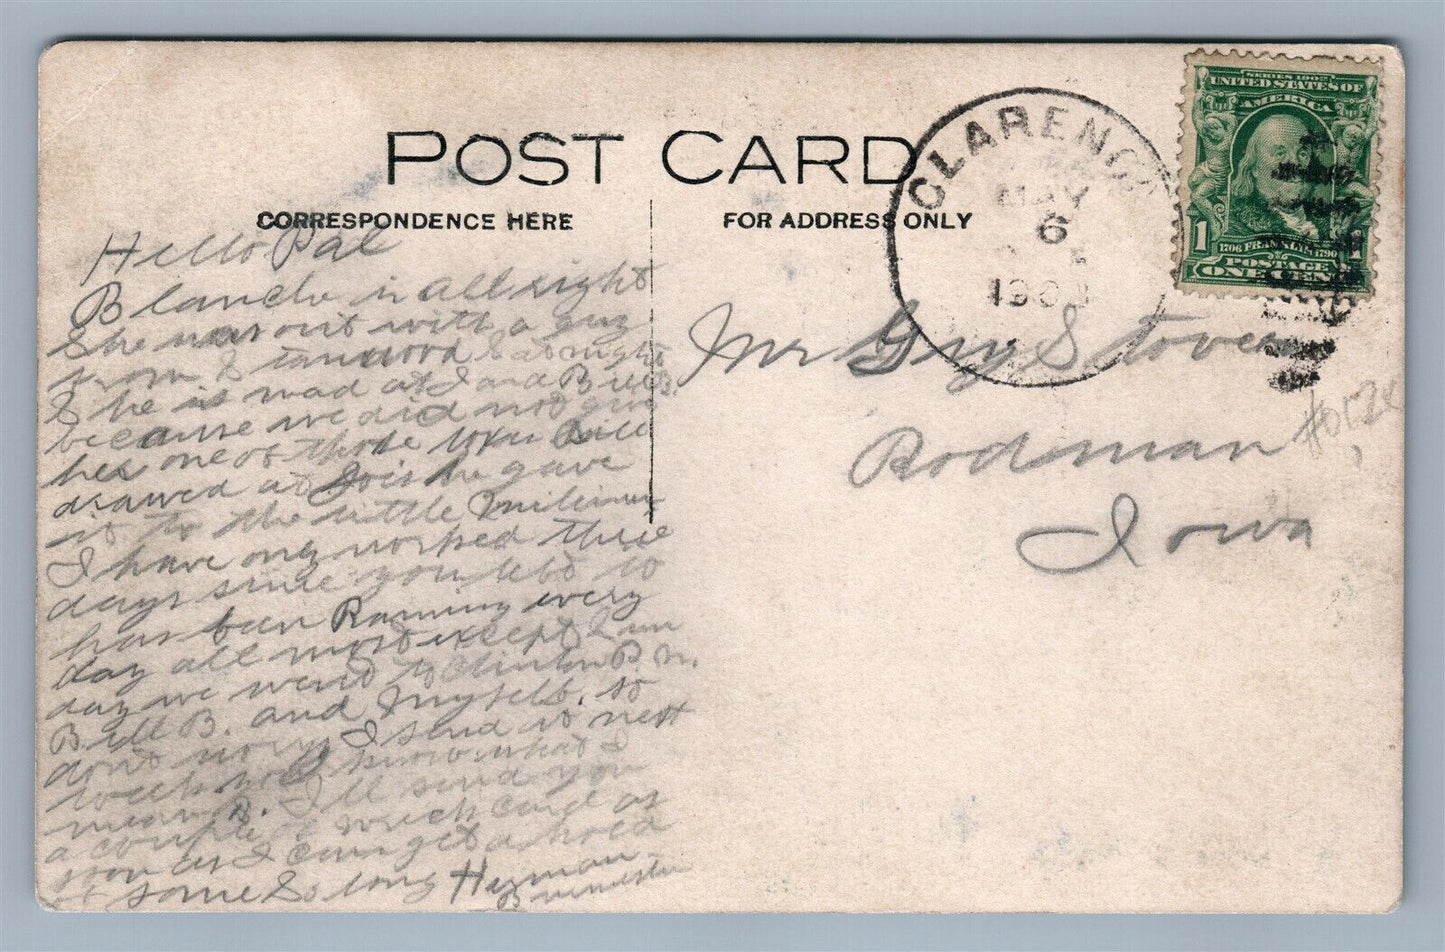 POST CARD
CORRESPONDENCE HERE
FOR ADDRESS ONLY
CLARENC
MAY
6
190
SERIES 1902
UNITED STATES OF
AMERICA
1
1706 FRANKLIN 1790
POSTAGE
ONE CENT
Hello Pal
Blanche is all right
She was out with a guy
from last night
She is mad at I and Bill B.
because we did not give
her one of those Bill
drawed at he gave
it to the little
I have only worked three
days since you left it
has been Raining every
day all most except Sun
day we went to Clinton P. M.
Bill B. and Myself. so
dont worry I send it next
week you know what I
mean B. I'll send you
a couple of wreck card as
soon as I can get a hold
of some So long Hyman
Mr Guy Stover
Rodman
Iowa